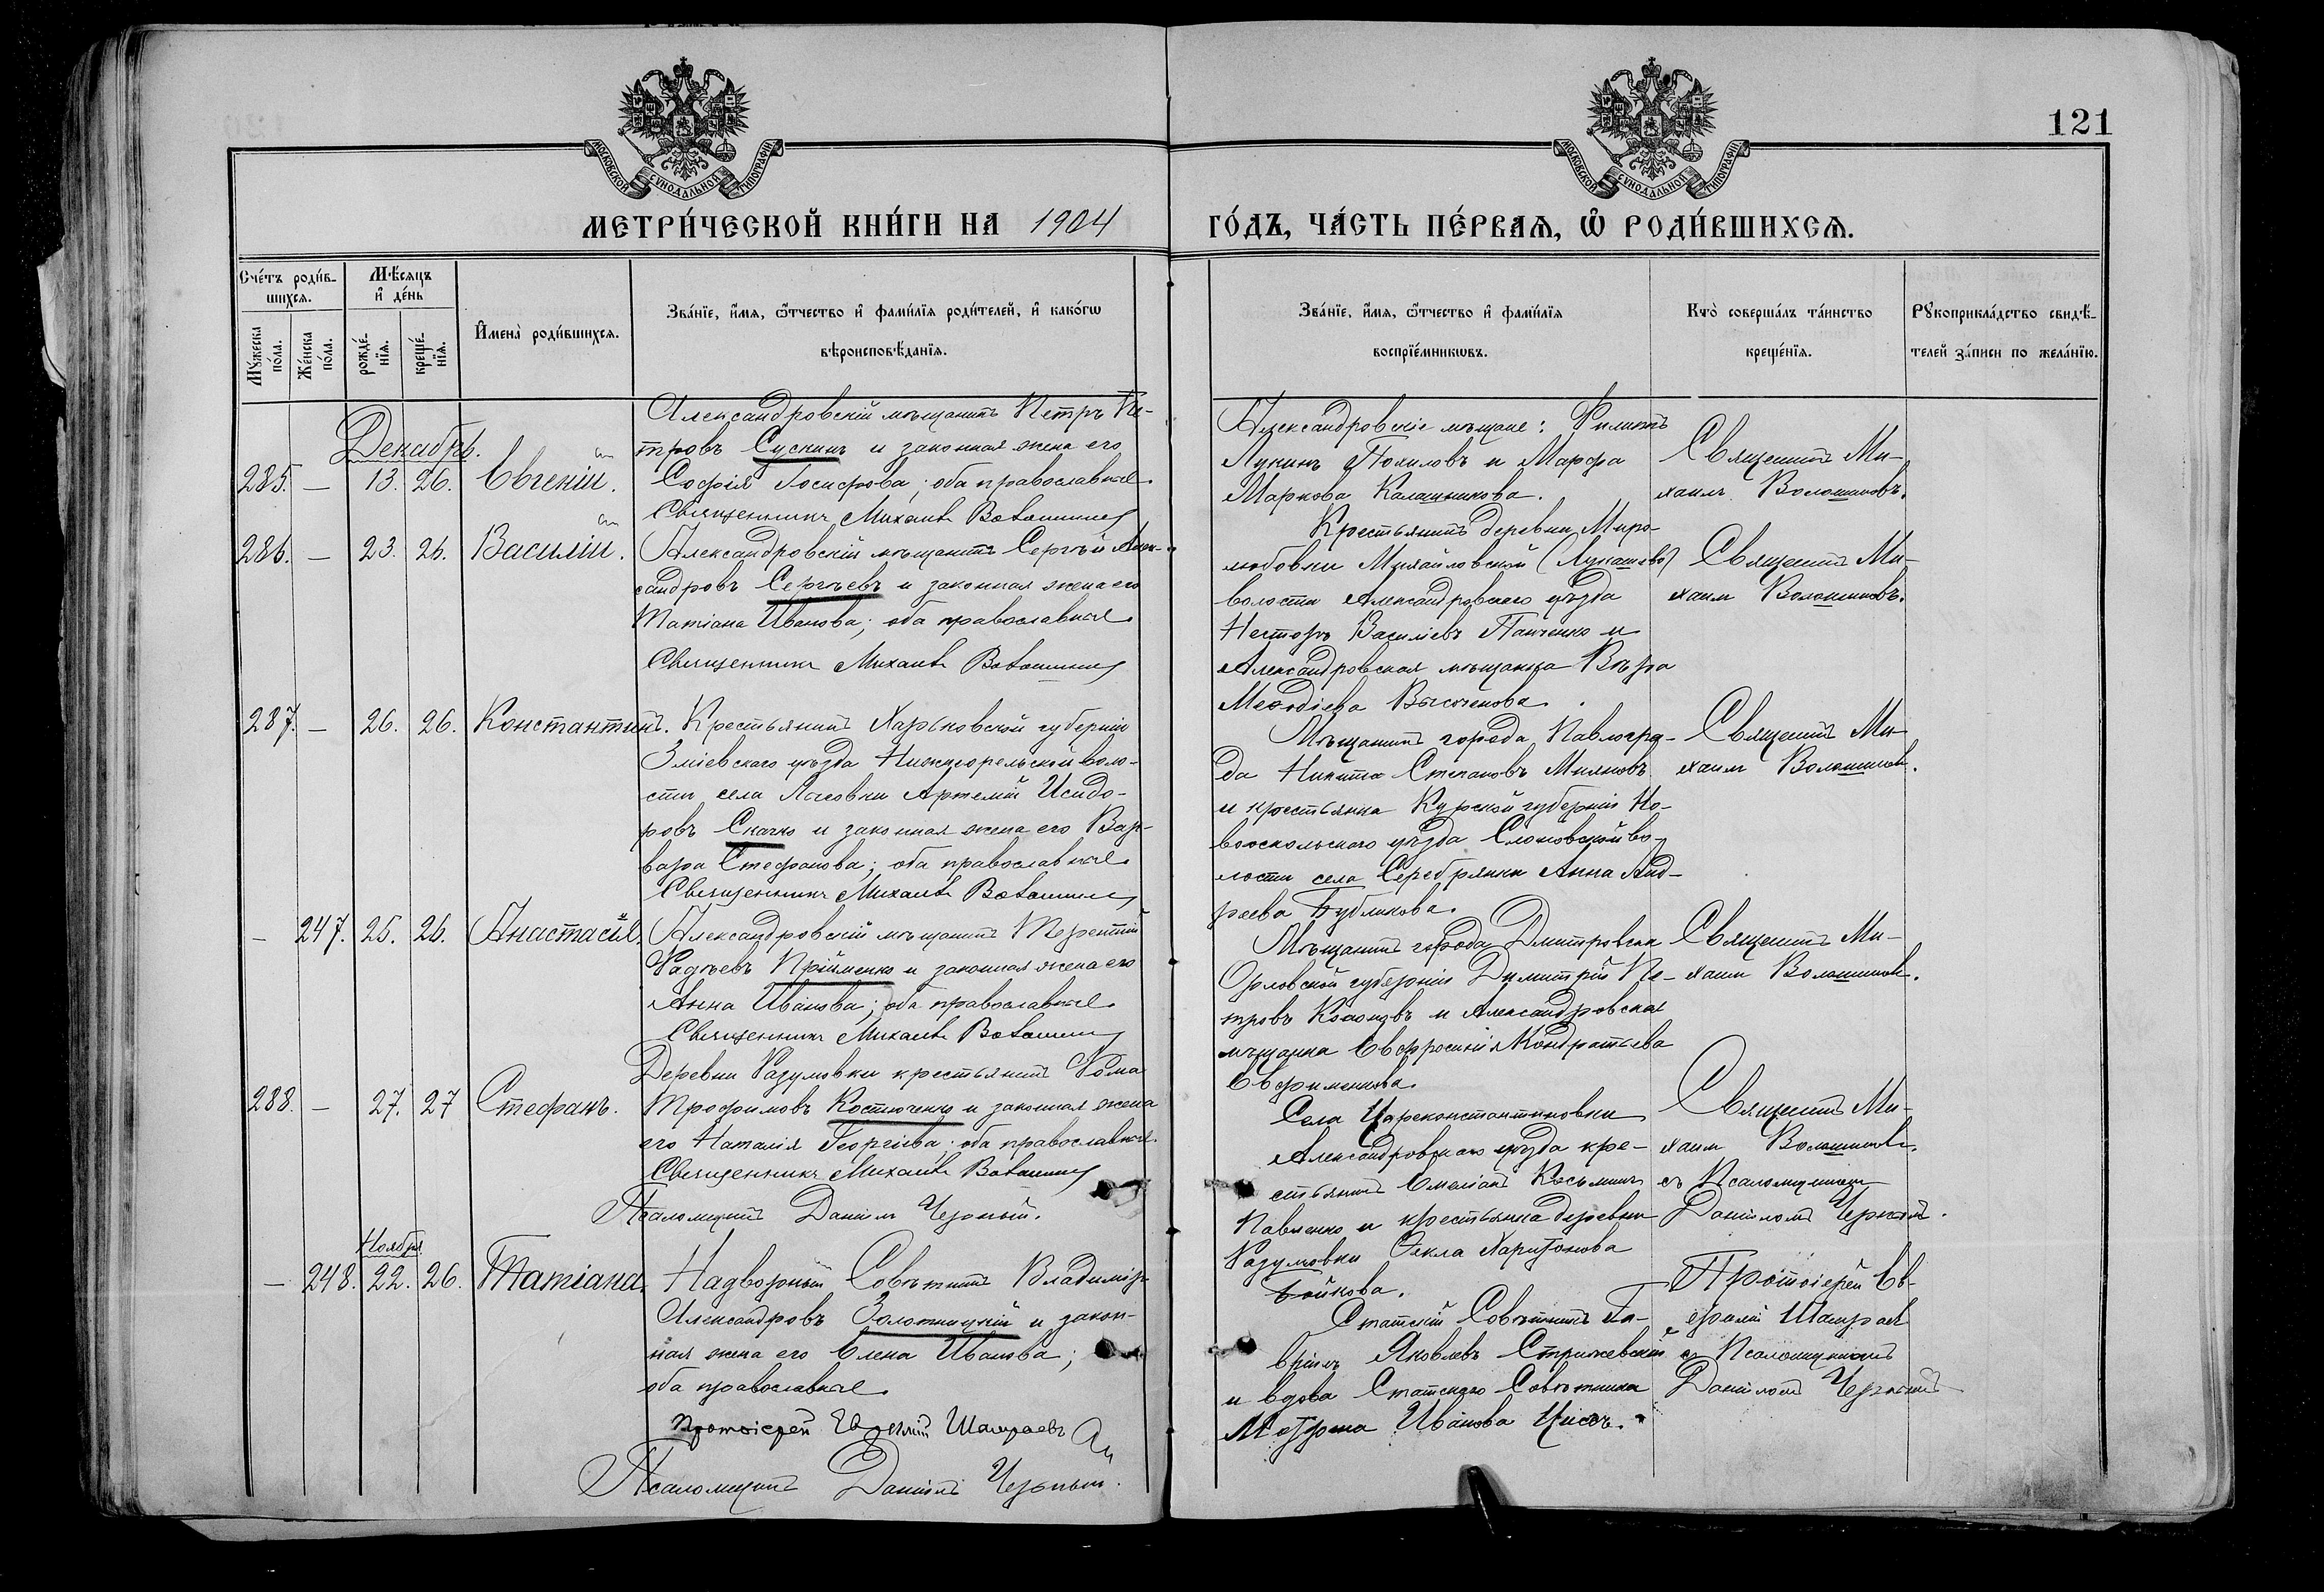 121
МОСКОВСКОЙ СѴНОДАЛЬНОЙ ТИПОГРАФІИ
МОСКОВСКОЙ СѴНОДАЛЬНОЙ ТИПОГРАФІИ
МЕТРИ́ЧЕСКОЙ КНИ́ГИ НА 1904
ГО́ДЪ, ЧА́СТЬ ПЕ́РВАѦ, Ѽ РОДИ́ВШИХСѦ.
Сче́тъ роди́в-
шихсѧ.
Мꙋ́жеска по́ла.
Же́нска по́ла.
Мѣ́сѧцъ
и҆ де́нь
рожде́-
нїѧ.
креще́-
нїѧ.
И҆мена̀ роди́вшихсѧ.
Зва́нїе, и҆́мѧ, ѻ҆́тчество и҆ фами́лїѧ роди́телей, и҆ како́гѡ
вѣроисповѣ́данїѧ.
Зва́нїе, и҆́мѧ, ѻ҆́тчество и҆ фами́лїѧ
воспрїе́мникѡвъ.
Кто̀ соверша́лъ та́инство
креще́нїѧ.
Рꙋкоприкла́дство свидѣ́-
телей за́писи по жела́нїю.
Декабрь.
285. — 13. 26. Евгеній.
Александровскій мѣщанинъ Петръ Пе-
тровъ Сускинъ и законная жена его
Софія Іосифова; оба православные.
Священникъ Михаилъ Волошиновъ
Александровскіе мѣщане: Филиппъ
Лукинъ Похиловъ и Марфа
Маркова Калашникова.
Священникъ Ми-
хаилъ Волошиновъ.
286. — 23. 26. Василій.
Александровскій мѣщанинъ Сергѣй Алек-
сандровъ Сергѣевъ и законная жена его
Татіана Иванова; оба православные.
Священникъ Михаилъ Волошиновъ
Крестьянинъ деревни Миро-
любовки Михайловской (Лукашово)
волости Александровскаго уѣзда
Несторъ Василіевъ Панченко и
Александровская мѣщанка Вѣра
Меѳодіева Высоченова.
Священникъ Ми-
хаилъ Волошиновъ.
287. — 26. 26. Константинъ.
Крестьянинъ Харьковской губерніи
Зміевскаго уѣзда Нижнеорельской воло-
сти села Артемій Исидо-
ровъ Скачко и законная жена его Вар-
вара Стефанова; оба православные.
Священникъ Михаилъ Волошиновъ
Мѣщанинъ города Павлогра-
да Никита Степановъ Миляковъ
и крестьянка Курской губерніи Но-
вооскольскаго уѣзда Слоновской во-
лости села Серебрянки Анна Анд-
реева Бубликова.
Священникъ Ми-
хаилъ Волошиновъ.
— 247. 25. 26. Анастасія.
Александровскій мѣщанинъ Терентій
Фадѣевъ Прійменко и законная жена его
Анна Иванова; оба православные.
Священникъ Михаилъ Волошиновъ
Мѣщанинъ города Дмитровска
Орловской губерніи Димитрій Пе-
тровъ и Александровская
мѣщанка Евфросинія Кондратьева
Евфименкова.
Священникъ Ми-
хаилъ Волошиновъ.
288. — 27. 27 Стефанъ.
Деревни Разумовки крестьянинъ Ѳома
Трофимовъ Костюченко и законная жена
его Наталія Георгіева; оба православные.
Священникъ Михаилъ Волошиновъ
Псаломщикъ Даніилъ Черный.
Села Цареконстантиновки
Александровскаго уѣзда кре-
стьянинъ Емеліанъ Косьминъ
Павленко и крестьянка деревни
Разумовки Ѳекла Харитонова
Бойкова.
Священникъ Ми-
хаилъ Волошиновъ.
съ Псаломщикомъ
Даніиломъ Чернымъ.
Ноября
— 248. 22. 26. Татіана.
Надворный Совѣтникъ Владиміръ
Александровъ Золотницкій и закон-
ная жена его Елена Иванова;
оба православные.
Протоіерей Евѳимій Шамраевъ
Псаломщикъ Даніилъ Черный.
Статскій Совѣтникъ Га-
вріилъ Яковлевъ Стрижевскій
и вдова Статскаго Совѣтника
Матрона Иванова
Протоіерей Ев-
ѳимій Шамраевъ
съ Псаломщикомъ
Даніиломъ Чернымъ